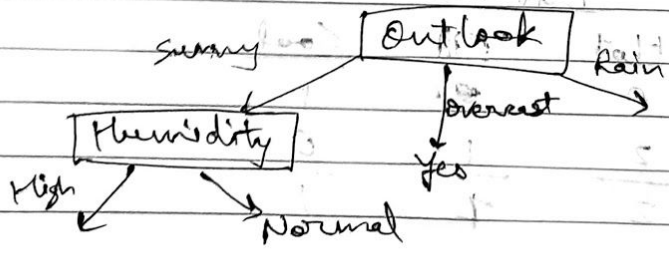 Outlook
Sunny
Rain
overcast
Humidity
Yes
High
Normal